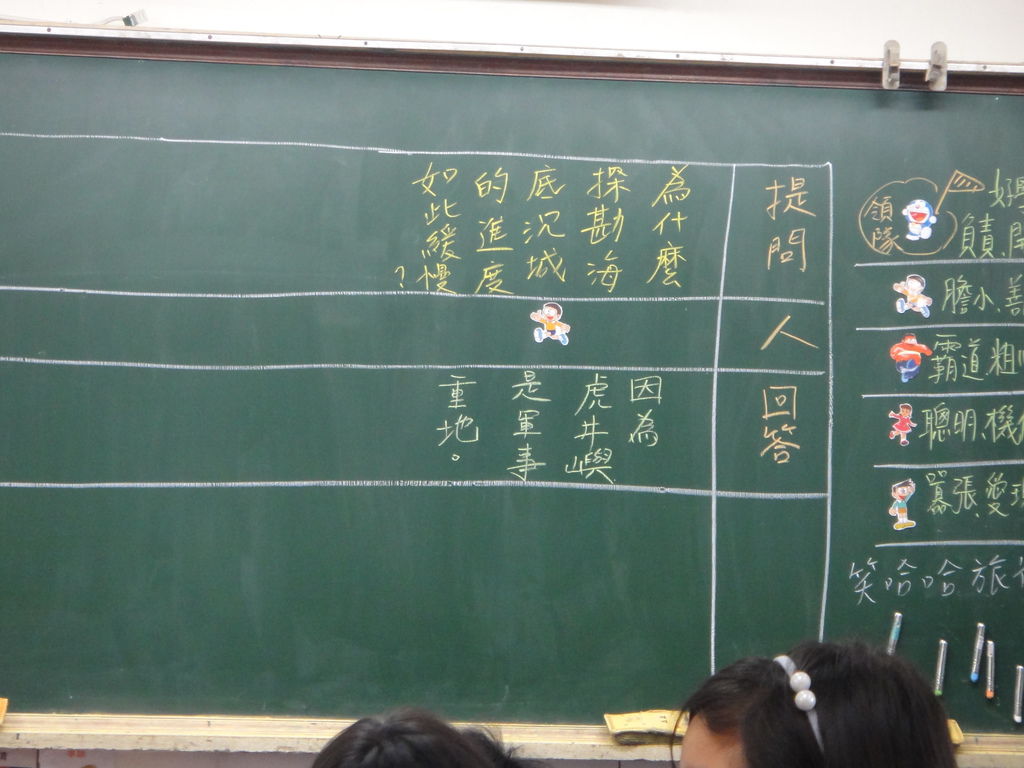 提問
為什麼
探勘海
底沉城
的進度
如此緩慢
？
人
回答
因為
虎井嶼
是軍事
重地。
領隊
負責、
膽小、善
霸道、粗
聰明、機
囂張、愛
笑哈哈旅